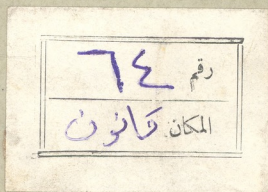 رقم ٦٤
المكان قانون